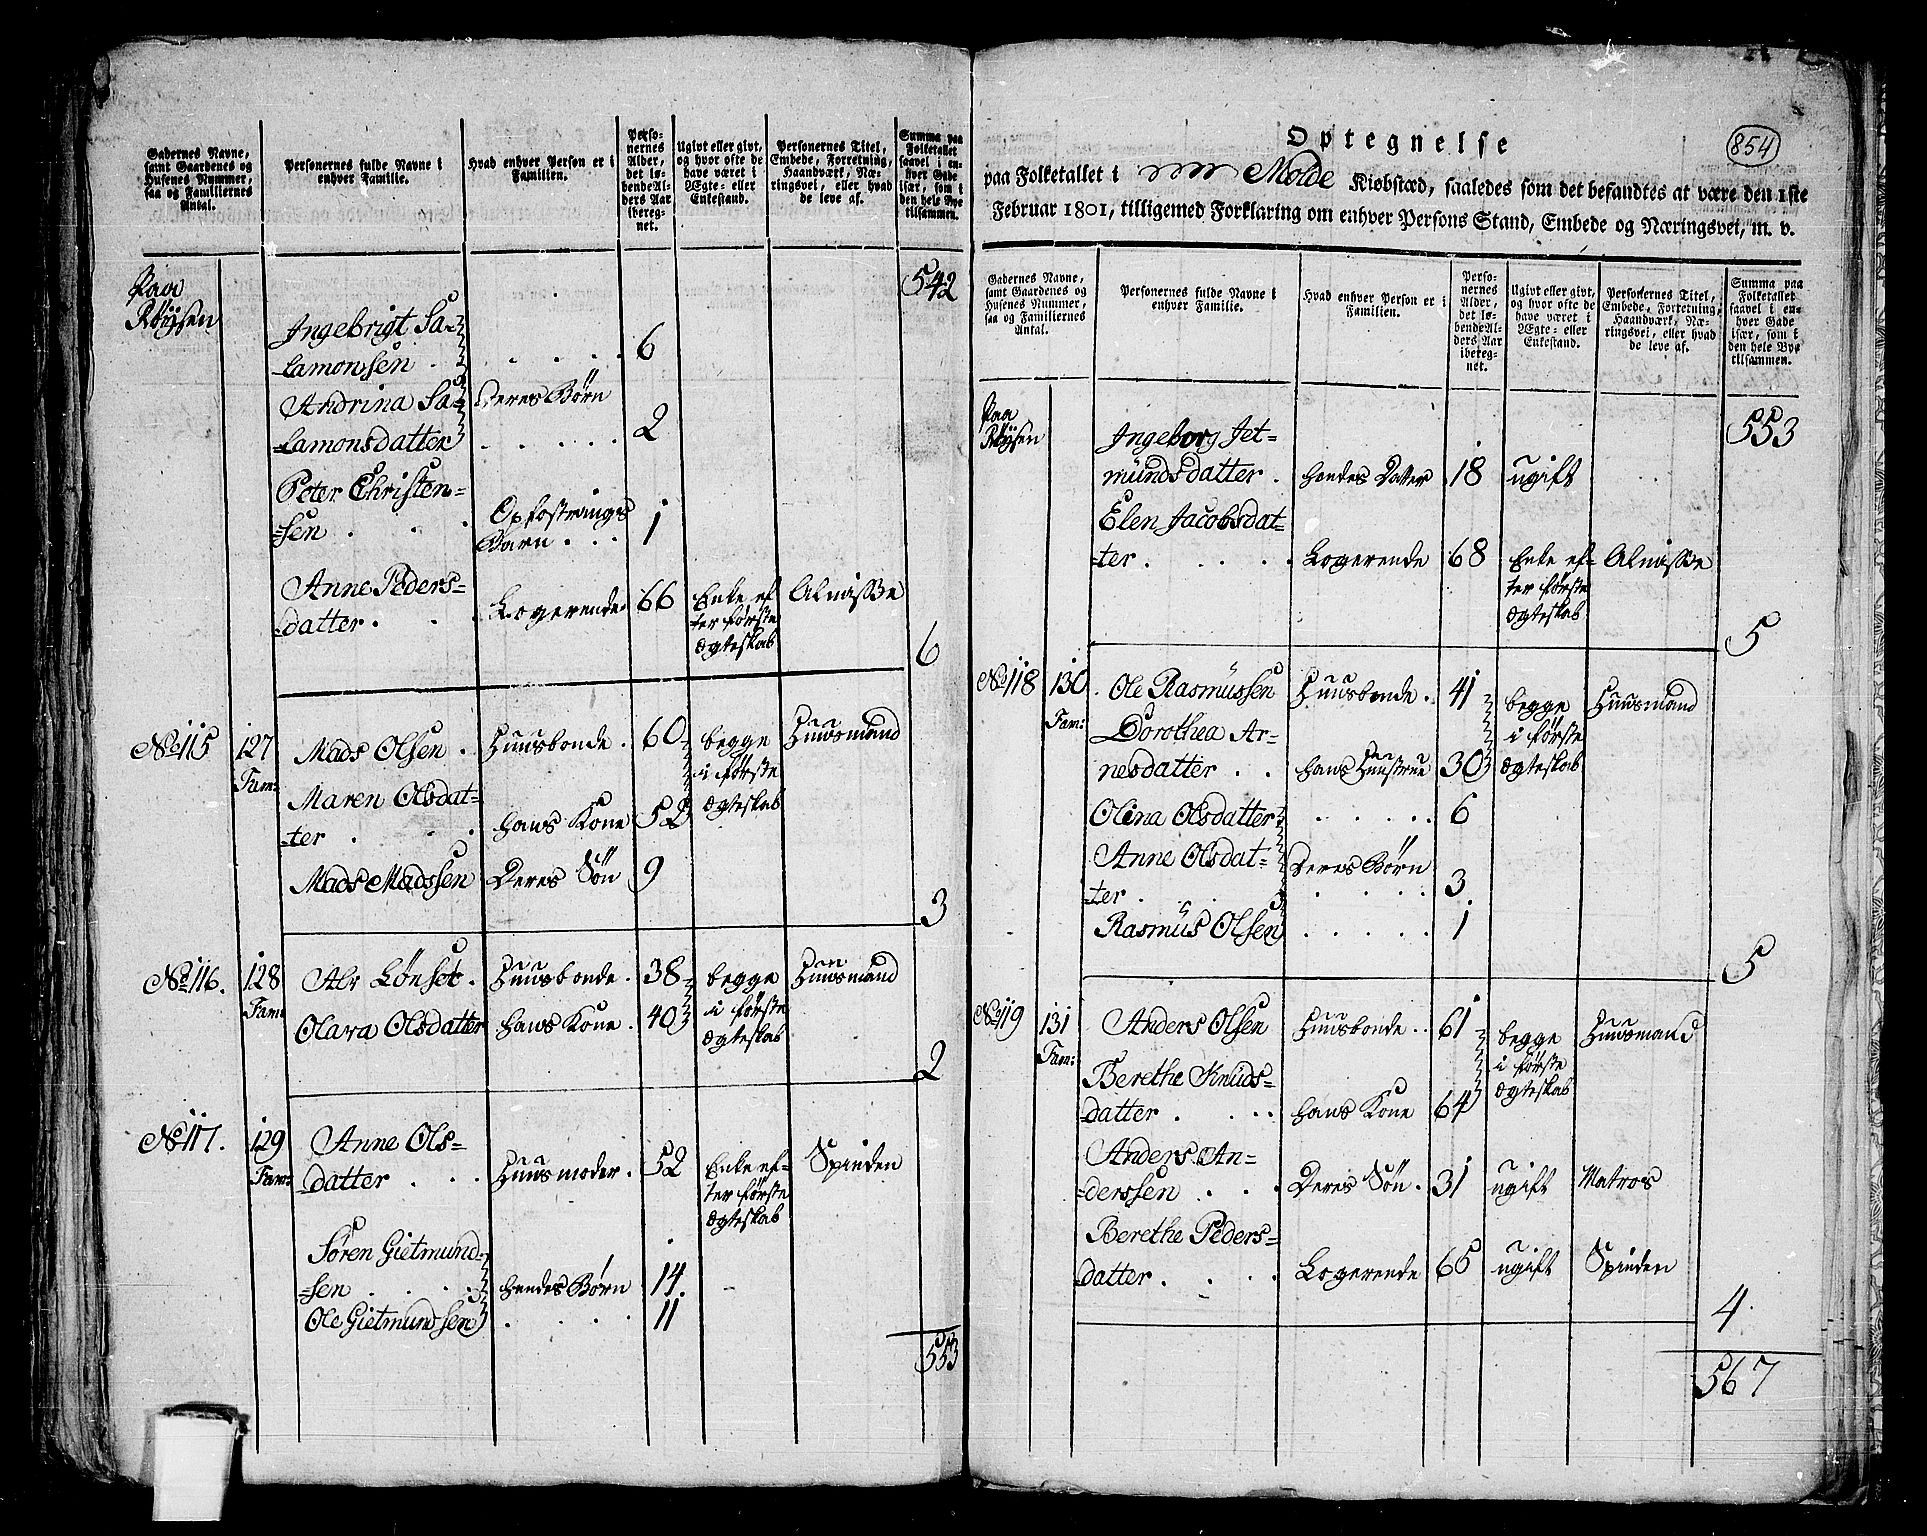 Gadernes Navne,
samt Gaardenes og
Husenes Nummer,
saa og Familiernes
Antal.
Personernes fulde Navne i
enhver Familie.
Hvad enhver Person er i
Familien.
Perso-
nernes
Alder,
det lø-
bende Al-
ders Aar
ibereg-
net.
Ugivt eller givt,
og hvor ofte de
have været i
Ægte- eller
Enkestand.
Personernes Titel,
Embede, Forretning,
Haandværk, Næ-
ringsvei, eller hvad
de leve af.
Summa paa
Folketallet
saavel i en-
hver Gade
især, som i
den hele Bye
tilsammen.
Paa
Røysen
542
Ingebrigt Sa-
lamonsen . . . . . 6
Andrina Sa- Deres Børn
lamonsdatter . . . . . 2
Peter Christen-
sen . . . Opfostrings
Barn . . . 1
Anne Peders-
datter . . . Logerende. 66 Enke ef
ter første
Ægteskab Almisse
6
No 115 127
Fam: Mads Olsen . Huusbonde . 60 begge
i første
Ægteskab Huusmand
Maren Olsdat-
ter . . . hans Kone 52
Mads Madssen Deres Søn 9
3
No 116. 128
Fam: Huusbonde . 38 begge
i første
Ægteskab Huusmand
Olava Olsdatter hans Kone . 40
2
No 117. 129
Fam: Anne Ols-
datter . . . Huusmoder . 52 Enke ef-
ter første
Ægteskab Spinden
Søren Gietmund-
sen . . . . hendes Børn 14.
Ole Gietmundsen . . . . 11
553
854
Optegnelse
paa Folketallet i Molde Kiøbstæd, saaledes som det befandtes at være den 1ste
Februar 1801, tilligemed Forklaring om enhver Persons Stand, Embede og Næringsvei, m. v.
Gadernes Navne,
samt Gaardenes og
Husenes Nummer,
saa og Familiernes
Antal.
Personernes fulde Navne i
enhver Familie.
Hvad enhver Person er i
Familien.
Perso-
nernes
Alder,
det lø-
bende Al-
ders Aar
ibereg-
net.
Ugivt eller givt,
og hvor ofte de
have været i
Ægte- eller
Enkestand.
Personernes Titel,
Embede, Forretning,
Haandværk, Næ-
ringsvei, eller hvad
de leve af.
Summa paa
Folketallet
saavel i en-
hver Gade
især, som i
den hele Bye
tilsammen.
Paa
Røysen
553
Ingeborg Jet-
mundsdatter . hendes Datter 18 ugift
Elen Jacobsdat-
ter . . . . . Logerende 68 Enke ef-
ter første
Ægteskab Almisse
5
No 118 130
Fam: Ole Rasmussen Huusbonde . 41 begge
i første
Ægteskab Huusmand
Dorothea Ar-
nesdatter . . hans Huustrue 30
Olina Olsdatter . . . . . 6
Anne Olsdat- Deres Børn
ter . . . . . . . 3
Rasmus Olsen . . . . . 1
5
No 119 131
Fam: Anders Olsen Huusbonde . . 61 begge
i første
Ægteskab Huusmand
Berethe Knuds-
datter . . . . hans Kone 64
Anders An-
derssen . . . Deres Søn . 31 ugift Matros
Berethe Peders-
datter . . . . Logerende 65 ugift Spinden
4.
567